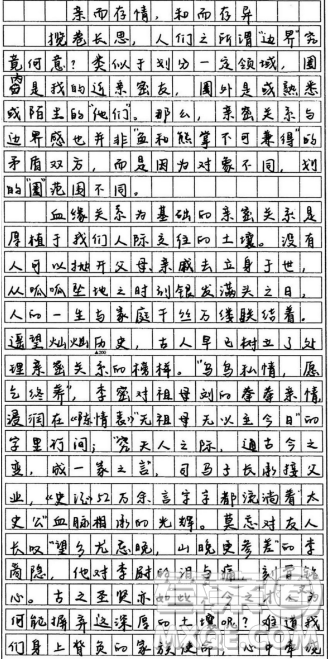 亲而存情，和而存异
揽卷长思，人们之所谓“边界”究
竟何意？类似于划分一定领域，圈
内是我的近亲密友，圈外是或熟悉
或陌生的“他们”。那么，亲密关系与
边界感也并非“鱼和熊掌不可兼得”的
矛盾双方，而是因为对象不同，划
的“圈”范围不同。
血缘关系为基础的亲密关系是
厚植于我们人际交往的土壤。没有
人可以抛开父母、亲戚去立身于世，
从呱呱坠地之时到银发满头之日，
人的一生与家庭千丝万缕联结着。
遥望灿灿历史，古人早已树立了处
理亲密关系的榜样。“乌鸟私情，愿
乞终养”，李密对祖母刘的拳拳亲情
浸润在《陈情表》“无祖母无以至今日”的
字里行间；“究天人之际，通古今之
变，成一家之言”，司马子长承接父
业，《史记》52万余言字字都流淌着“太
史公”血脉相承的光辉。莫忘对友人
长叹“望乡尤忌晚，山晚更参差”的李
商隐，他对李尉的泪与痛，刻骨铭
心。古之至贤亦如此，今之才人
何能摒弃这深厚的土壤呢？难道我
们身上背负的家族使命、心中牵绕